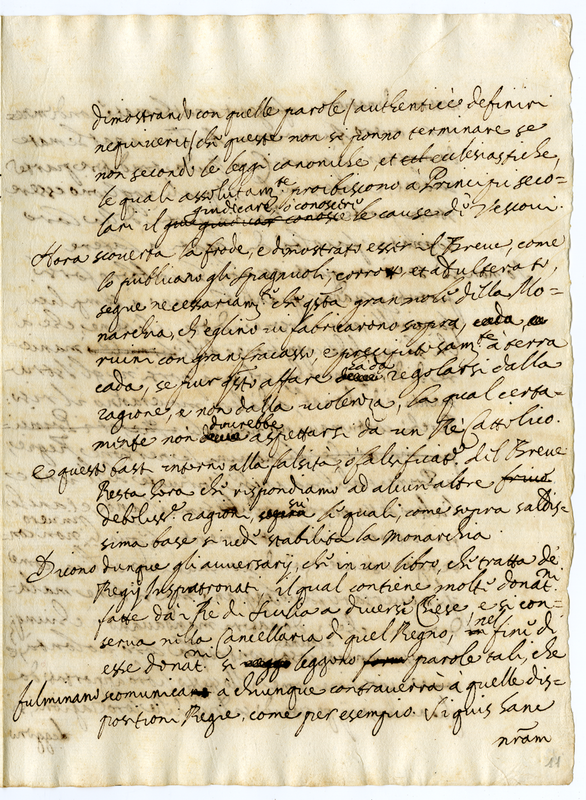 dimostrando con quelle parole (authenticè definiri
nequiverit) chè queste non si ponno terminare se
non secondo le leggi canoniche, et ecclesiastiche,
le quali assolutam.te proibiscono à Principi seco=
giudicare, lo conoscere
lari il le cause di Vescovi.
Hora scoverta la frode, e dimostrato esser il Breve, come
lo publicano gli Spagnuoli, corrotto, et adulterato,
segue necessariam.te che q̃sta gran mole della Mo=
narchia, ch'eglino vi fabricarono sopra,
ruini con gran fracasso, e sam.te à terra
cada, se pur q̃sto affare regolarsi dalla
ragione, e non dalla violenza, la qual certa=
dourebbe
mente non aspettarsi da un Rè Cattolico.
E questo basti intorno alla falsità, ò falsificat.e del Breve
Resta hora che rispondiamo ad alcun'altre
deboliss.e ragioni, sù le quali, come sopra saldis=
sima base si vede stabilita la Monarchia
Dicono dunque gli avversarij, che in un libro, che tratta de'
Regij Inspatronati il qual contiene molte donat.ni
fatte da i Rè di Sicilia a diverse Chiese e si con=
serva nella Cancellaria di quel Regno, nel fine di
esse donat.ni si leggono parole tali, che
fulminano scomunica à chiunque contraverrà à quelle dis=
positioni Regie, come per esempio. Si quis sane
nr̃am
11